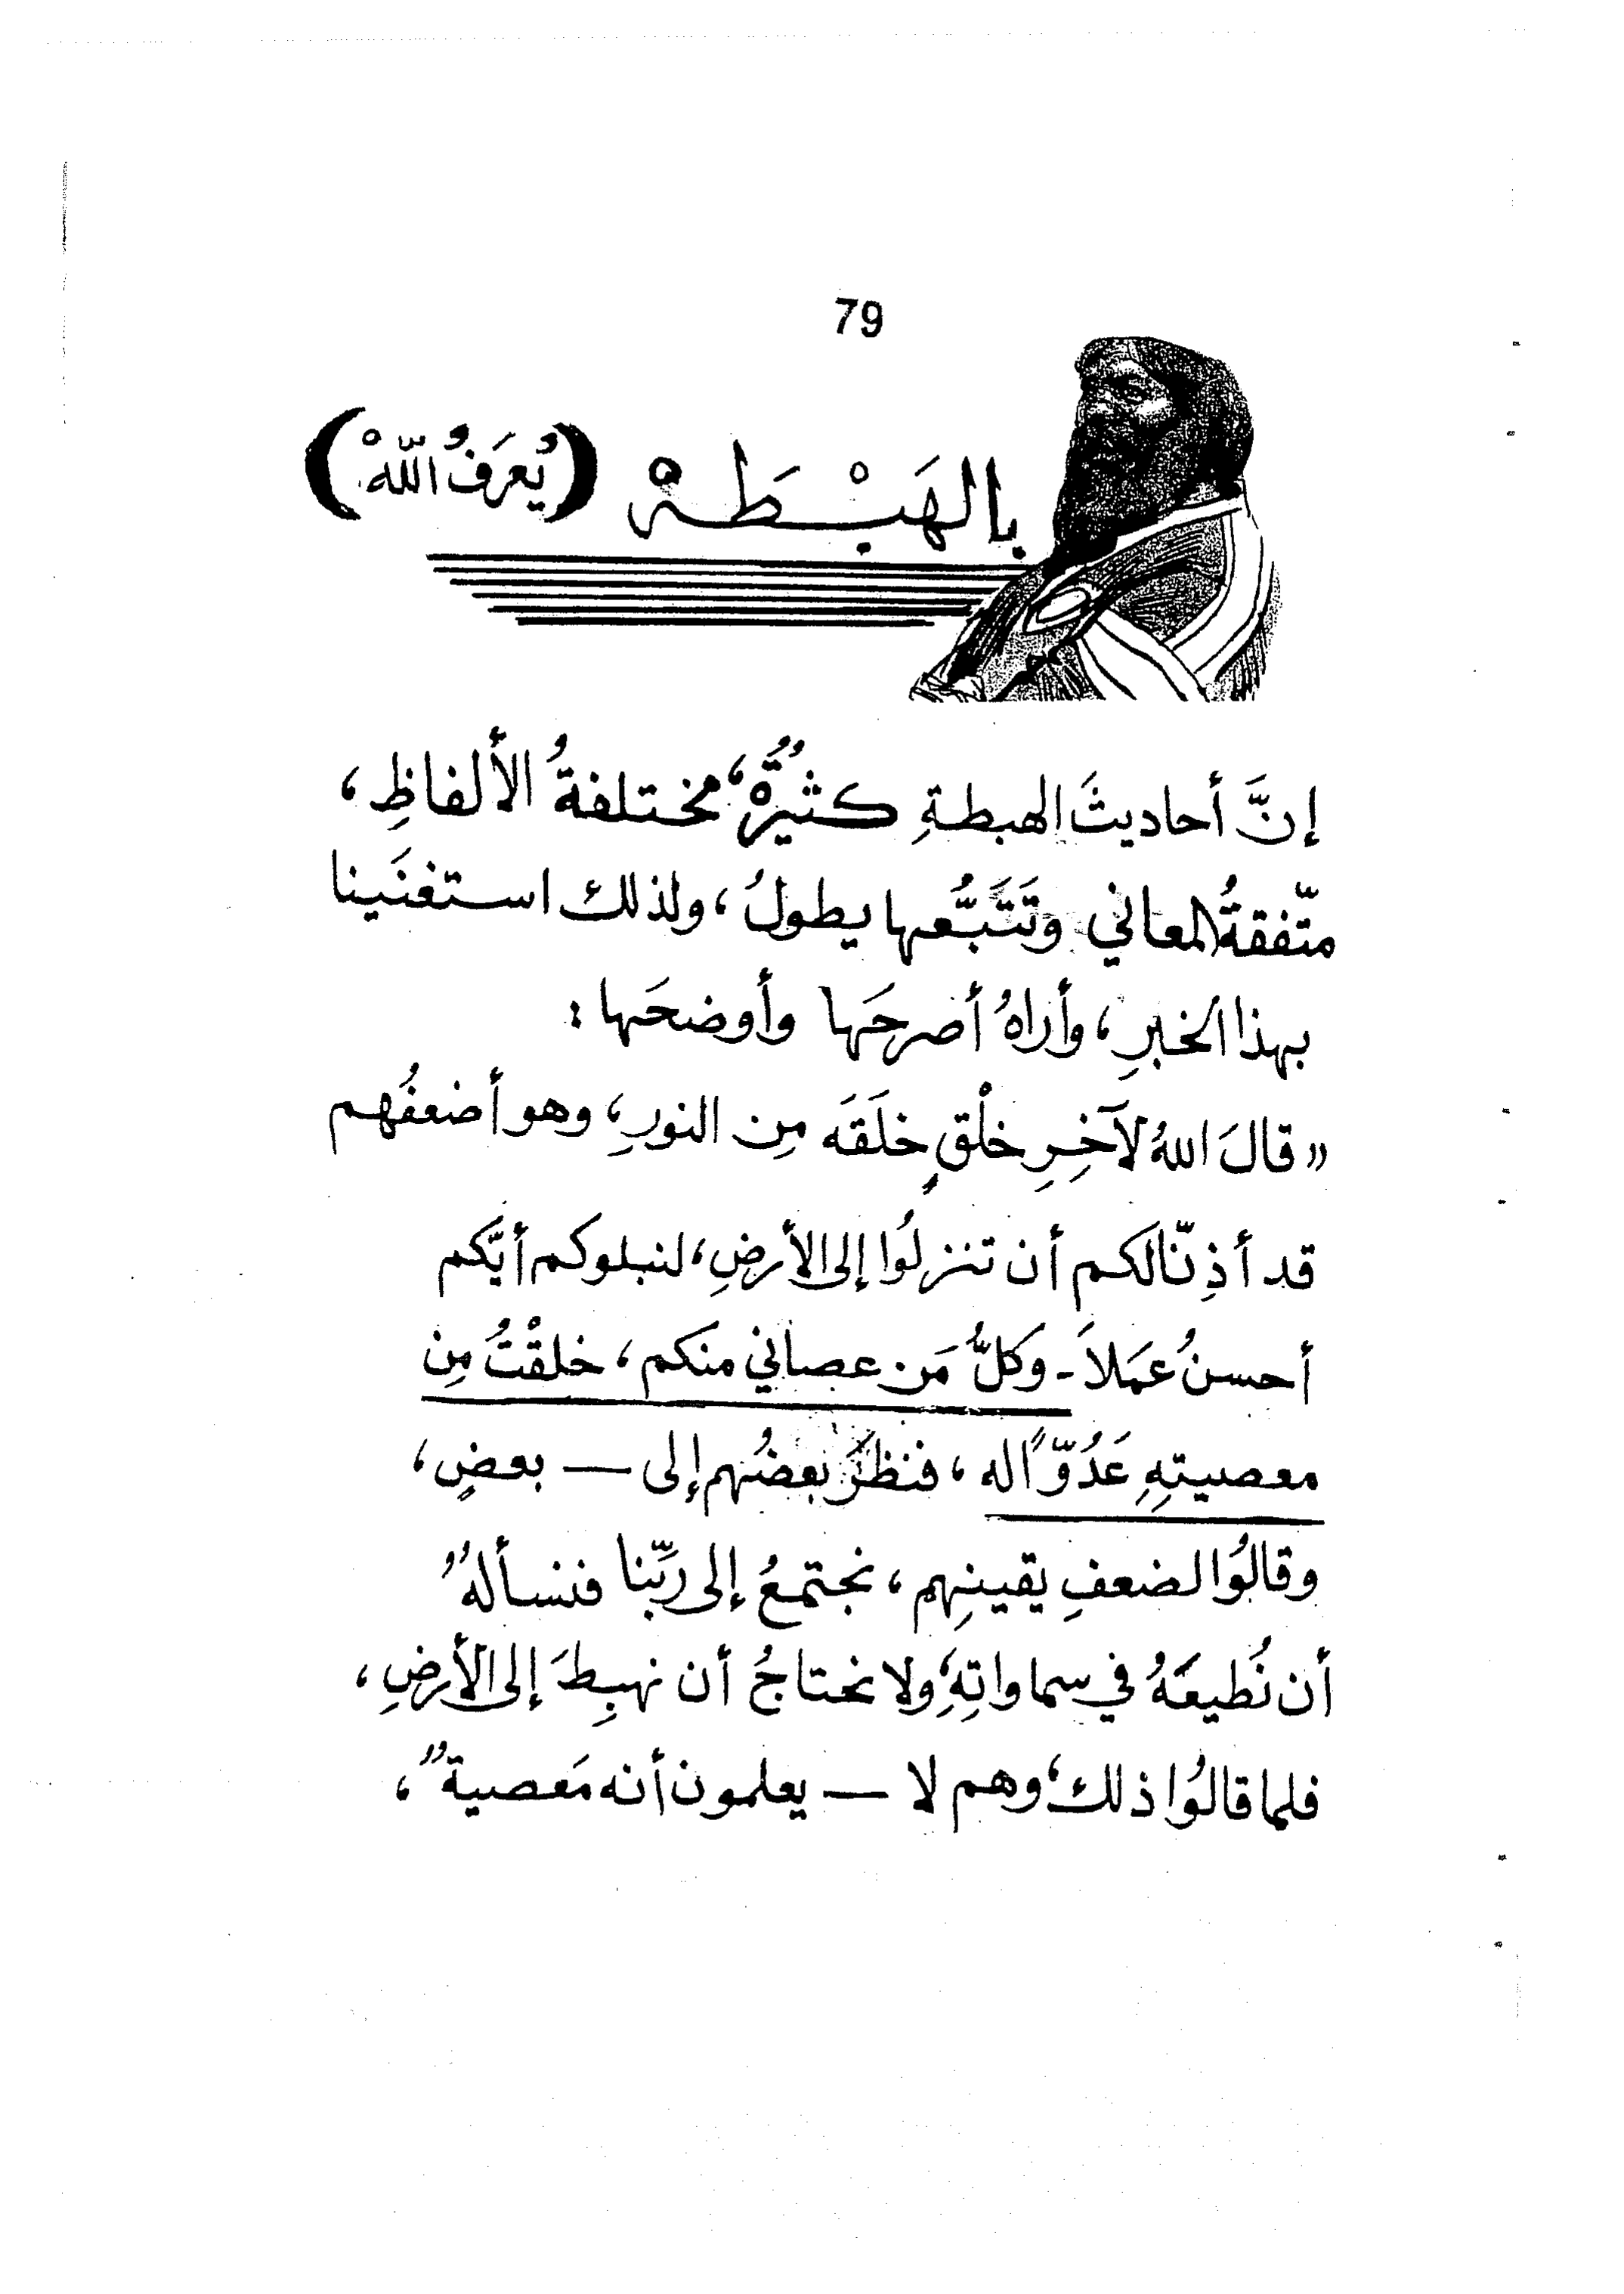 79
بالهَبْطَهْ (يُعرَفُ اللّهْ)
إنَّ أحاديثَ الهبطةِ كثيرةٌ، مختلفةُ الألفاظِ،
متّفقةُ المعاني وتَتَبُّعها يطولُ، ولذلك استغنَينا
بهذا الخبرِ، وأراهُ أصرحَها وأوضحَها:
«قالَ اللهُ لآخِرِ خلْقٍ خلَقَه مِن النورِ، وهو أضعفُهم
قد أذِنّا لكم أن تنزلُوا إلى الأرضِ، لنبلوكم أيّكم
أحسنُ عمَلاً - وكلُّ مَن عصاني منكم، خلقْتُ مِن
معصيتِهِ عَدُوّاً له، فنظرَ بعضُهم إلى — بعضٍ،
وقالوُا لضعفِ يقينِهم، نجتمعُ إلى ربِّنا فنسألهُ"
أن نُطيعَهُ في سماواتِهِ، ولا نحتاجُ أن نهبِطَ إلى الأرضِ،
فلما قالوُا ذلك، وهم لا — يعلمون أنه مَعصية"،